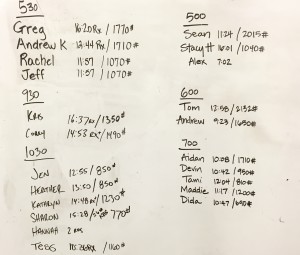 530
Greg 16:20Rx / 1770#
Andrew K 12:44Rx / 1710#
Rachel 11:57 / 1070#
Jeff 11:57 / 1070#
930
Kris 16:37Rx / 1350#
Corey 14:53 Rx / 1490#
1030
Jen 12:55 / 850#
Heather 13:50 / 850#
Kathryn 14:48Rx / 1230#
Sharon 15:28 / 770#
Hannah
Tess / 1160#
500
Sean 11:24 / 2015#
Stacy H 16:01 / 1040#
Alex 7:02
600
Tom 12:58 / 2132#
Andrew 9:23 / 1650#
700
Aidan 10:08 / 1710#
Devin 10:42 / 950#
Tami 12:04 / 810#
Maddie 11:17 / 1200#
Dida 10:47 / 690#